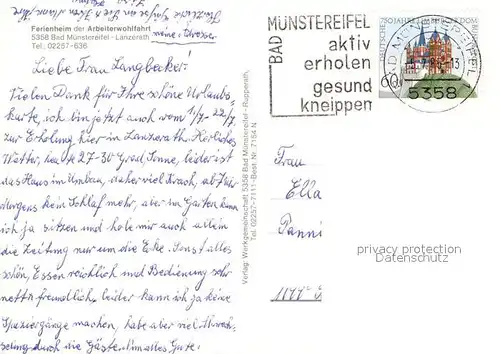 Ferienheim der Arbeiterwohlfahrt
5358 Bad Münstereifel - Lanzerath
Tel.: 02257-636
Liebe Frau Langbecker!
Vielen Dank für Ihre schöne Urlaubs-
karte, ich bin jetzt auch vom 1./7.- 22/7.
zur Erholung hier in Lanzerath. Herliches
Wetter, heute 27-30 Grad, Sonne, leider ist
das Haus im Umbau, daher viel Krach, ab 7 Uhr
Morgens kein Schlaf mehr, aber im Garten kann
ich ja sitzen und hole mir auch allein
die Zeitung nur um die Ecke. Sonst alles
schön, Essen reichlich und Bedienung sehr
nett & freundlich, leider kann ich ja keine
Spaziergänge machen, habe aber viel Abwech-
selung durch die Gäste. Nun alles Gute!
Verlag: Werkgemeinschaft 5358 Bad Münstereifel - Rupperath,
Tel. 02257-7111 - Best. Nr. 7154 N
BAD
MÜNSTEREIFEL
aktiv
erholen
gesund
kneippen
BAD MÜNSTEREIFEL
5358
60
Frau
Ella
Panni
privacy protection
Datenschutz